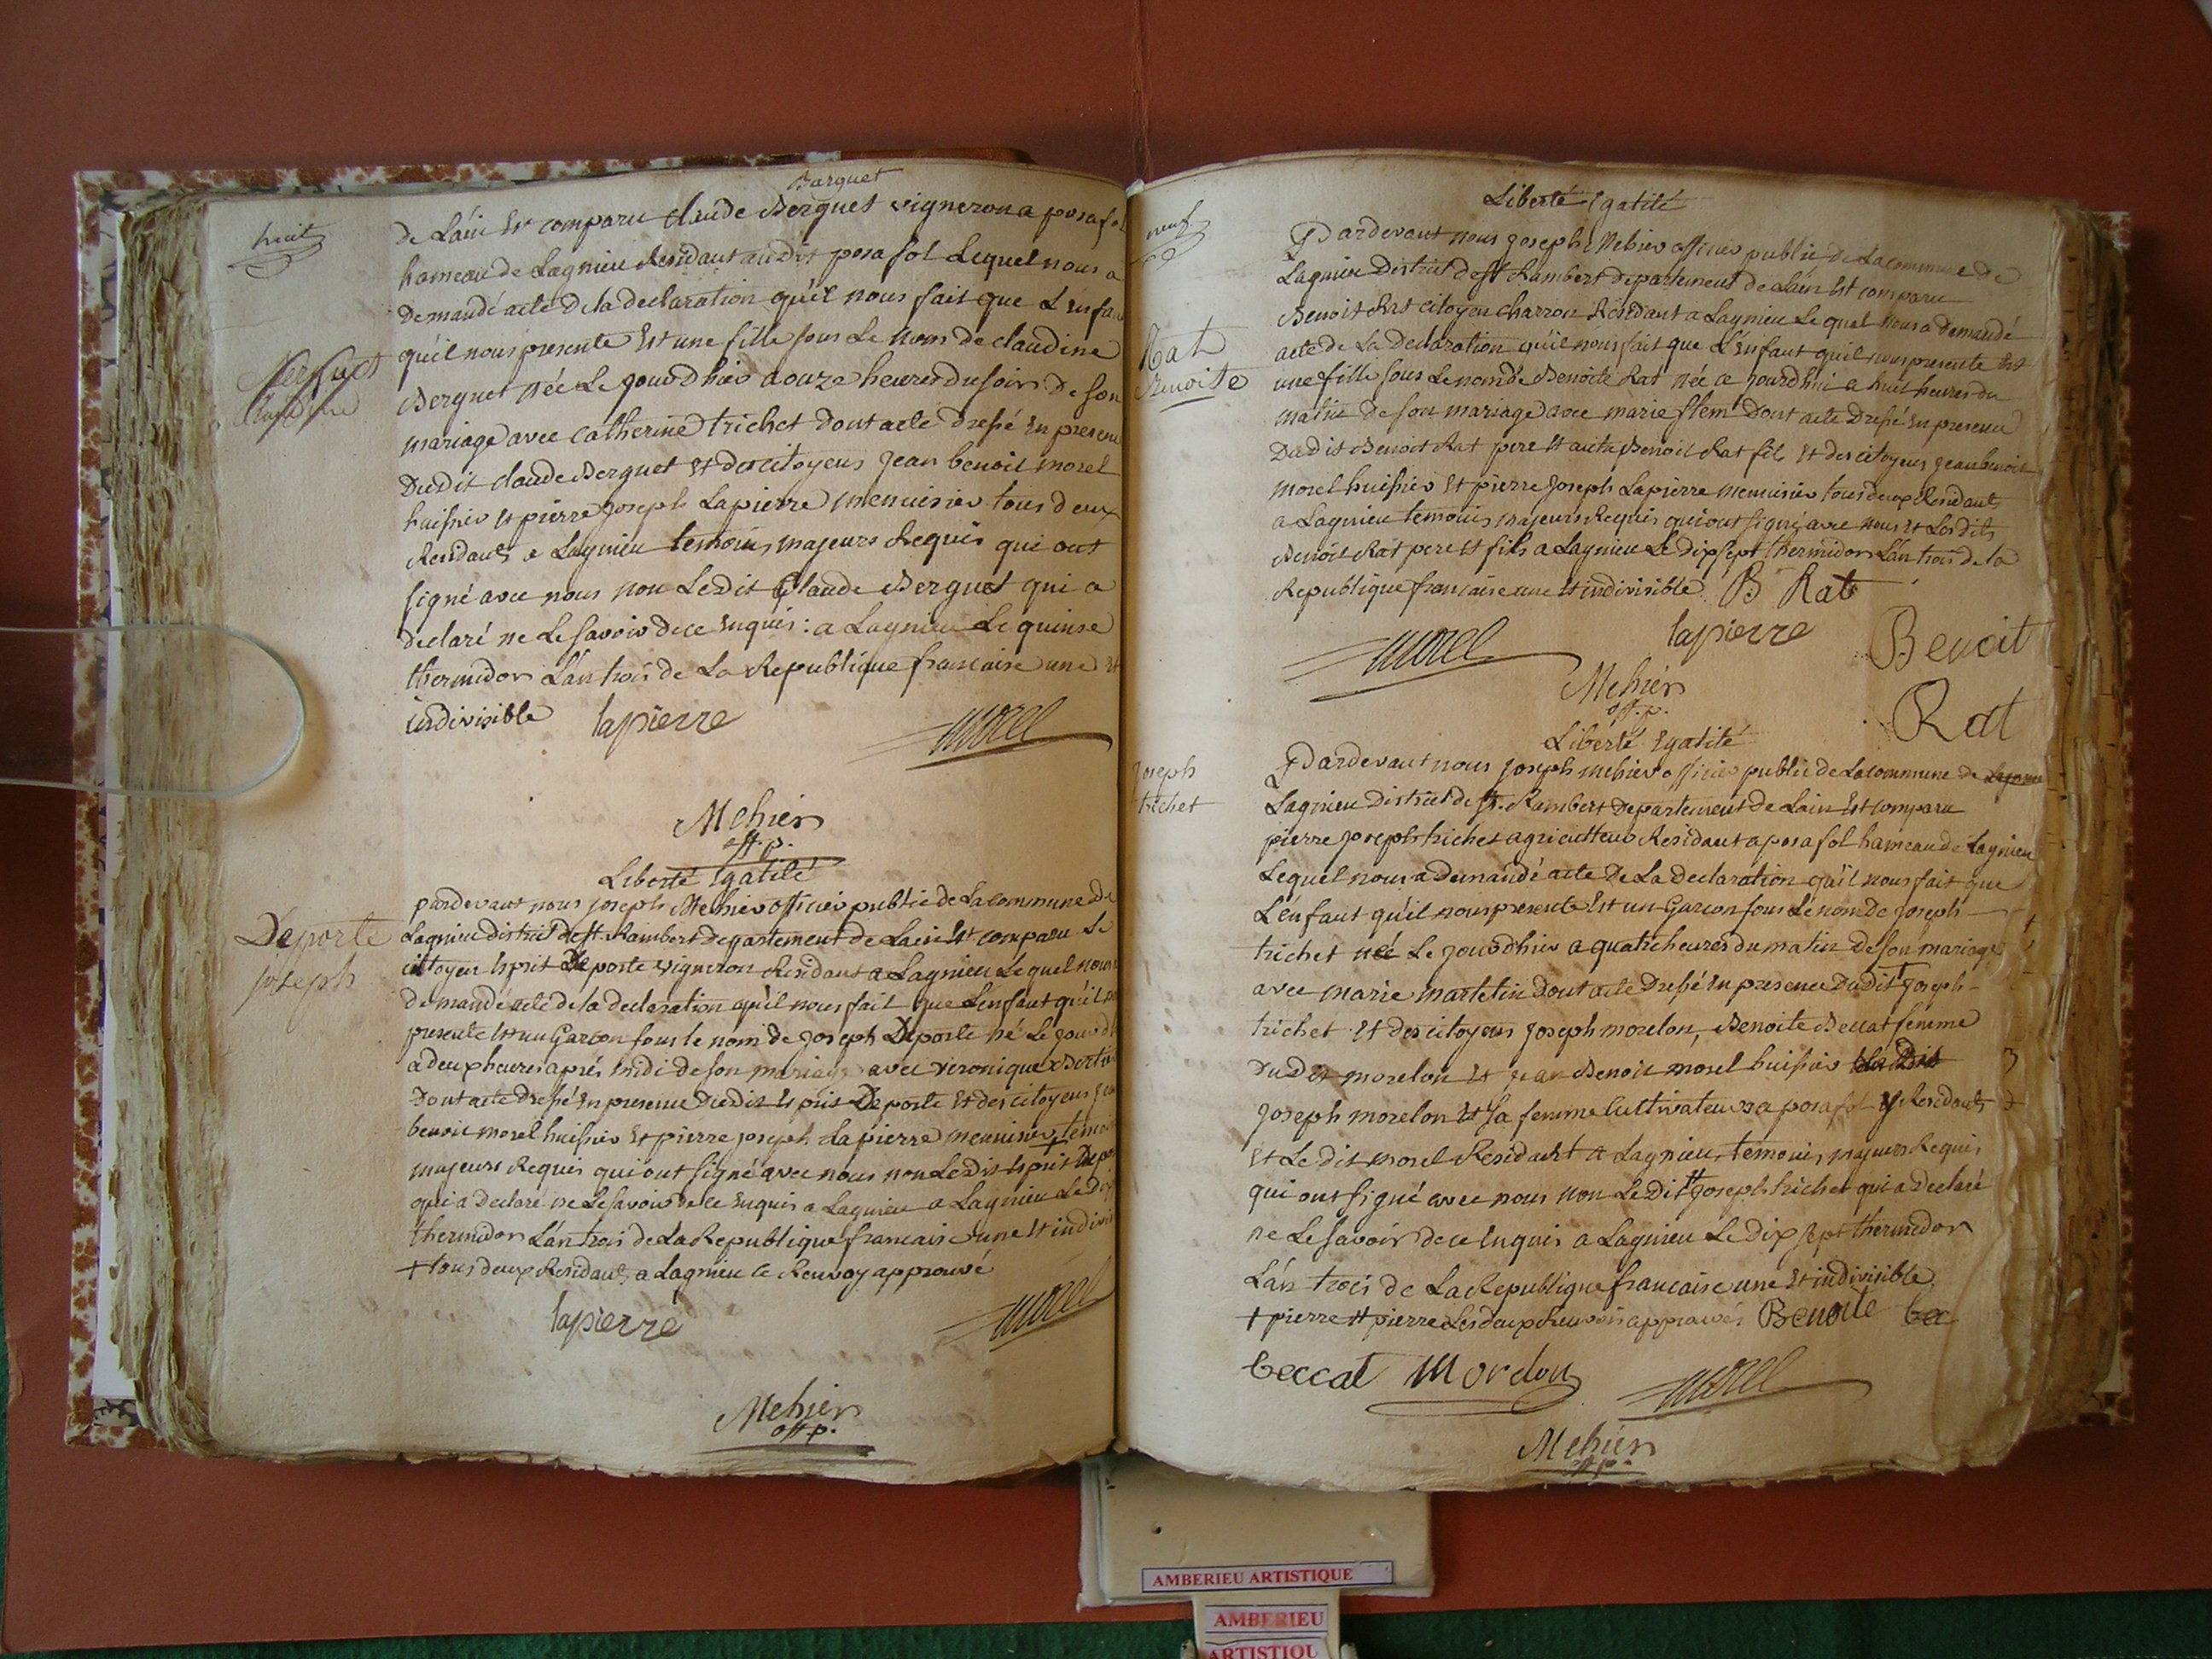 huit
Barquet
de Láin Est comparu claude Berguet vigneron a posafol
hameau de Lagnieu Residant audit posafol Lequel nous a
Demandé acte De la declaration qu'il nous fait que L'enfan
qu'il nous presente Est une fille sous Le Nom de claudine
Berguet Née Le jourdhier a onze heures du soir de son
mariage avec catherine trichet dont acte dresé En presence
Dudit claude Berguet Et des citoyens jean benoit morel
huissier Et pierre joseph Lapierre menuisier tous deux
Residants a Lagnieu temoins majeurs Requis qui ont
signé avec nous non Ledit Claude Berguet qui a
declaré ne Le savoir de ce Enquis : a Lagnieu Le quinse
thermidor Lán trois de La Republique francaise une Et
indivisible
lapierre
morel
Mehier
off. p.
Liberté Egalité
Deporte
joseph
pardevant nous joseph Mehier officier public de La commune de
Lagnieu district de St. Rambert departement de Lain Est comparu Le
citoyen Esprit Deporte vigneron Residant a Lagnieu Lequel nous
demandé acte de la declaration qu'il nous fait que L'enfant qu'il
presente Est un Garcon sous le nom de joseph Deporte né Le jourd
a deux heures aprés midi de son mariage avec veronique Berti
Dont acte Dresé En presence Dudit Esprit Deporte Et des citoyens
benoit morel huissier Et pierre joseph Lapierre menuisier + temoi
majeurs Requis qui ont signé avec nous non Ledit Esprit Depo
qui a Declaré ne Le savoir de ce Enquis a Lagnieu a Lagnieu Le
thermidor Lán trois de La Republique francaise une Et indivi
+ tous deux Residants a Lagnieu Le Renvoy approuvé
lapierre
morel
Mehier
off p.
neuf
Liberté Egalité
Rat
Benoite
Pardevant nous joseph Mehier officier public De La commune De
Lagnieu District de St Rambert departement de Láin Est comparu
Benoit Rat citoyen charron Residant a Lagnieu Lequel Nous a Demandé
acte de La Declaration qu'il nous fait que L'enfant qu'il nous presente Est
une fille sous Le nom de Benoite Rat Née a jourdhui a huit heures du
matin de son mariage avec marie Dont acte Dresé En presence
Dudit Benoit Rat pere Et autre Benoit Rat fils Et des citoyens jean benoit
morel huissier Et pierre joseph Lapierre menuisier tous deux Residants
a Lagnieu temoins majeurs Requis qui ont signé avec nous Et Lesdits
Benoit Rat pere Et fils a Lagnieu Le dix sept thermidor Lán trois de la
Republique francaise une Et indivisible
B Rat
morel
lapierre
Benoit
Rat
Mehier
off. p.
Liberté Egalité
Joseph
trichet
Pardevant nous joseph Mehier officier public de La commune de
Lagnieu District de St. Rambert Departement de Lain Est comparu
pierre joseph trichet agriculteur Residant a posafol hameau de Lagnieu
Lequel nous a Demandé acte De La Declaration qu'il nous fait que
L'enfant qu'il nous presente Est un Garcon sous Le nom de joseph
trichet né Le jourdhier a quatre heures du matin De son mariage
avec marie martetin Dont acte Dresé En presence Dudit + joseph
trichet Et des citoyens joseph morelon, Benoite Beccat femme
Dudit morelon Et jean Benoit morel huissier
joseph morelon Et sa femme Cultivateurs a posafol y Residants
Et Le dit morel Residant a Lagnieu temoins majeurs Requis
qui ont signé avec nous non Le dit # joseph trichet qui a Declaré
ne Le savoir de ce Enquis a Lagnieu Le Dix sept thermidor
Lán trois de La Republique francaise une Et indivisible
+ pierre # pierre Les deux Renvois approuvés
Benoite bec
beccat Morelon
morel
Mehier
off. p.
AMBERIEU ARTISTIQUE
AMBERIEU
ARTISTIQU